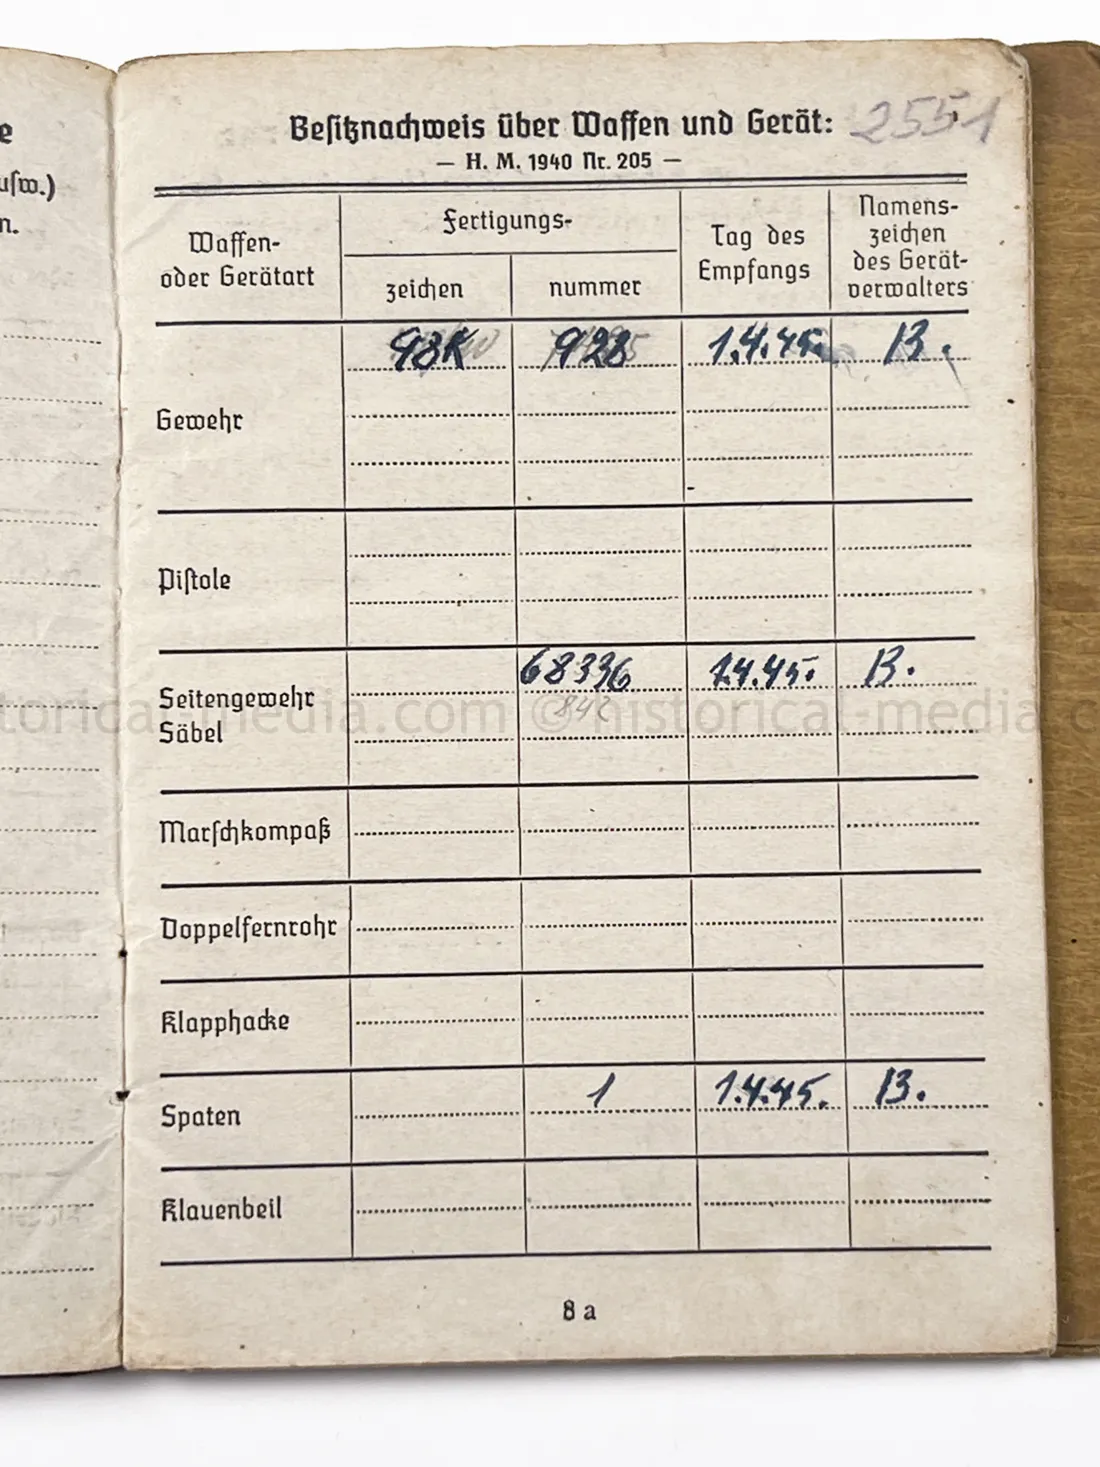 e
usw.)
n.
Besitznachweis über Waffen und Gerät: 2551
— H. M. 1940 Nr. 205 —
Waffen-
oder Gerätart
Fertigungs-
zeichen
nummer
Tag des
Empfangs
Namens-
zeichen
des Gerät-
verwalters
Gewehr
98K 928 1.4.45. B.
Pistole
Seitengewehr
Säbel
68336 1.4.45. B.
842
torical-media.com © historical-media.c
Marschkompaß
Doppelfernrohr
Klapphacke
Spaten 1 1.4.45. B.
Klauenbeil
8 a